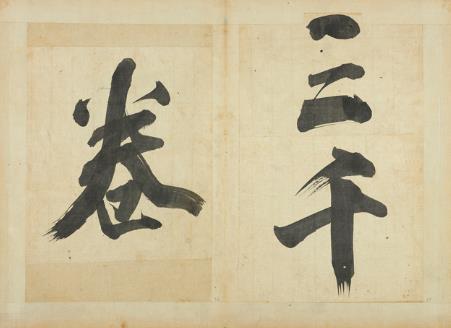 三千
卷